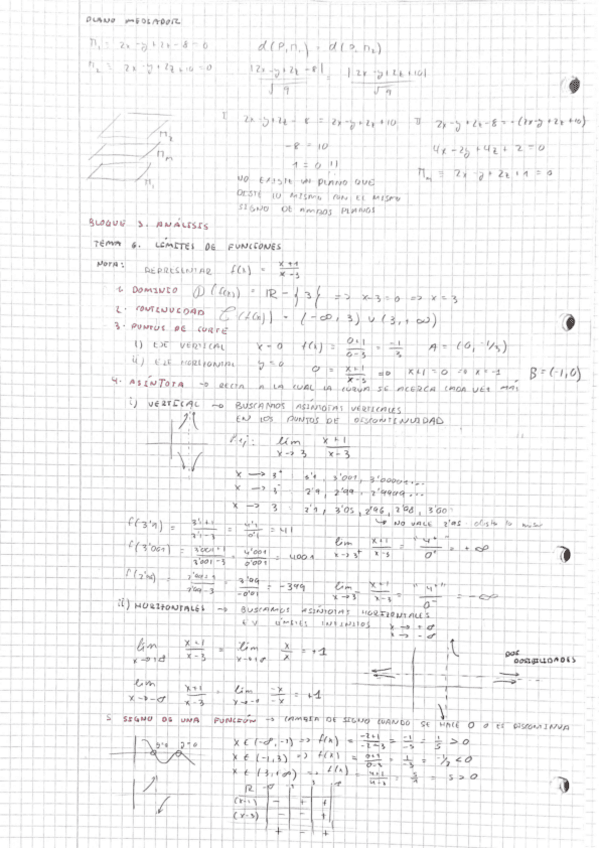 PLANO MEDIADOR
π₁ = 2x-y+2z-8=0 d(P,π₁) = d(P,π₂)
π₂ = 2x-y+2z+10=0 |2x-y+2z-8|/√9 = |2x-y+2z+10|/√9
I 2x-y+2z-8 = 2x-y+2z+10 II 2x-y+2z-8=-(2x-y+2z+10)
-8 = 10 4x-2y+4z+2=0
1=0 !! πm = 2x-y+2z+1=0
π₂
πm
π₁
NO EXISTE UN PLANO QUE
DISTE LO MISMO CON EL MISMO
SIGNO DE AMBOS PLANOS
BLOQUE 3. ANÁLISIS
TEMA 6. LÍMITES DE FUNCIONES
NOTA: REPRESENTAR f(x) = (x+1)/(x-3)
1. DOMINIO D(f(x)) = R - {3} => x-3=0 => x=3
2. CONTINUIDAD C(f(x)) = (-∞, 3) ∪ (3, +∞)
3. PUNTOS DE CORTE
i) EJE VERTICAL x=0 f(x) = (0+1)/(0-3) = -1/3 A = (0, -1/3)
ii) EJE HORIZONTAL y=0 0 = (x+1)/(x-3) => x+1=0 => x=-1 B=(-1,0)
4. ASÍNTOTA → RECTA A LA CUAL LA CURVA SE ACERCA CADA VEZ MÁS
i) VERTICAL → BUSCAMOS ASÍNTOTAS VERTICALES
EN LOS PUNTOS DE DISCONTINUIDAD
Ej: lim x→3 (x+1)/(x-3)
x → 3⁺ 3'1, 3'001, 3'00001...
x → 3⁻ 2'9, 2'99, 2'9999...
x → 3
NO VALE 2'95
f(3'1) = (3'1+1)/(3'1-3) = 4'1/0'1 = 41
f(3'001) = (3'001+1)/(3'001-3) = 4'001/0'001 = 4001 lim x→3⁺ (x+1)/(x-3) = "4⁺"/0⁺ = +∞
f(2'99) = (2'99+1)/(2'99-3) = 3'99/-0'01 = -399 lim x→3⁻ (x+1)/(x-3) = "4"/0⁻ = -∞
ii) HORIZONTALES → BUSCAMOS ASÍNTOTAS HORIZONTALES
EN LÍMITES INFINITOS x→+∞ x→-∞
lim x→+∞ (x+1)/(x-3) = lim x→+∞ x/x = +1
DOS POSIBILIDADES
lim x→-∞ (x+1)/(x-3) = lim x→-∞ -x/-x = +1
5. SIGNO DE UNA FUNCIÓN → CAMBIA DE SIGNO CUANDO SE HACE 0 O ES DISCONTINUA
y=0 y=0
x∈(-∞,-1) => f(x) = (-2+1)/(-2-3) = -1/-5 = 1/5 > 0
x∈(-1,3) => f(x) = (0+1)/(0-3) = 1/-3 = -1/3 < 0
x∈(3,+∞) => f(x) = (4+1)/(4-3) = 5/1 = 5 > 0
R -∞ -1 3 +∞
(x+1) - + +
(x-3) - - +
+ - +